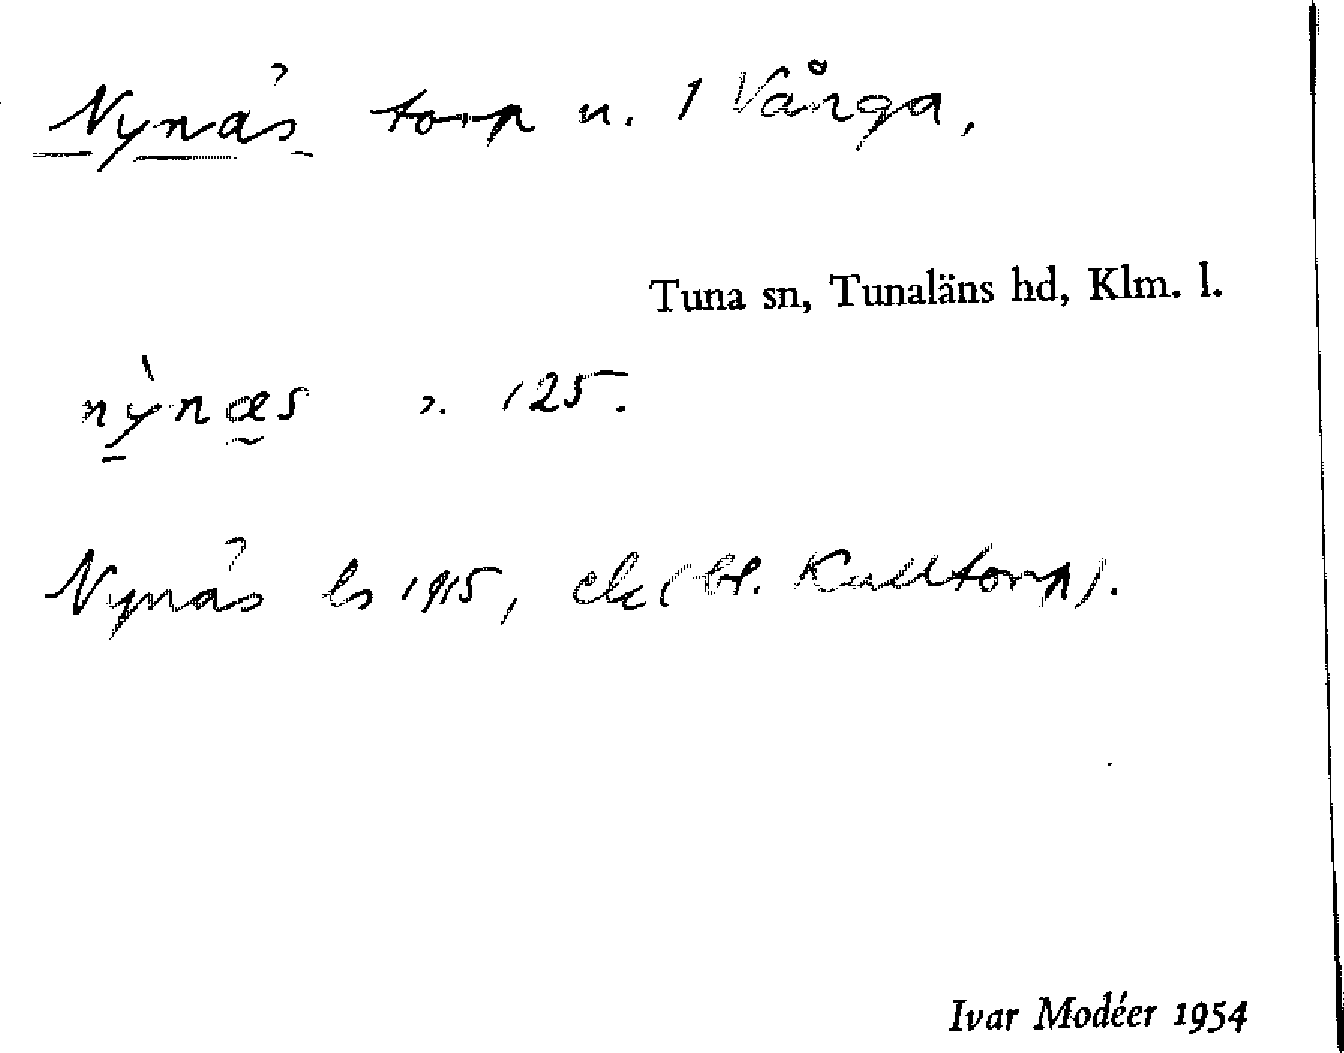 Nynäs torp u. 1 Vånga,
Tuna sn, Tunaläns hd, Klm. l.
nỳnæs 125.
Nynäs ls 1915, ek (bl. Kulltorp).
Ivar Modéer 1954